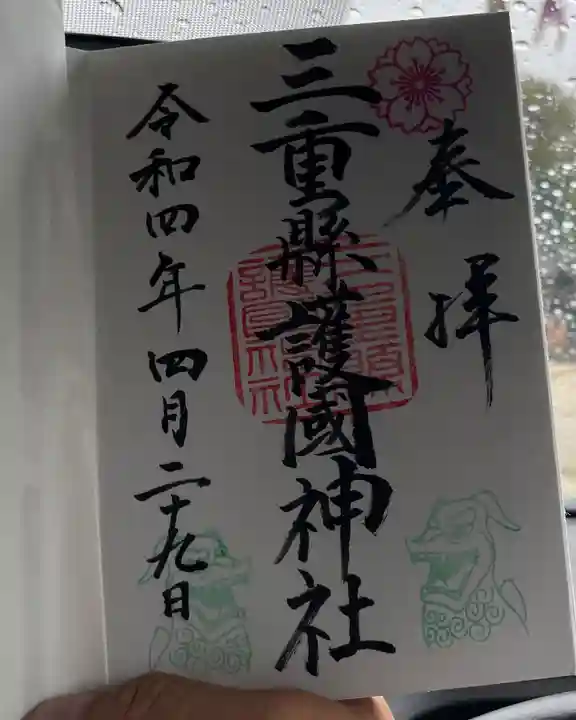 奉拝
三重縣護國神社
令和四年四月二十九日